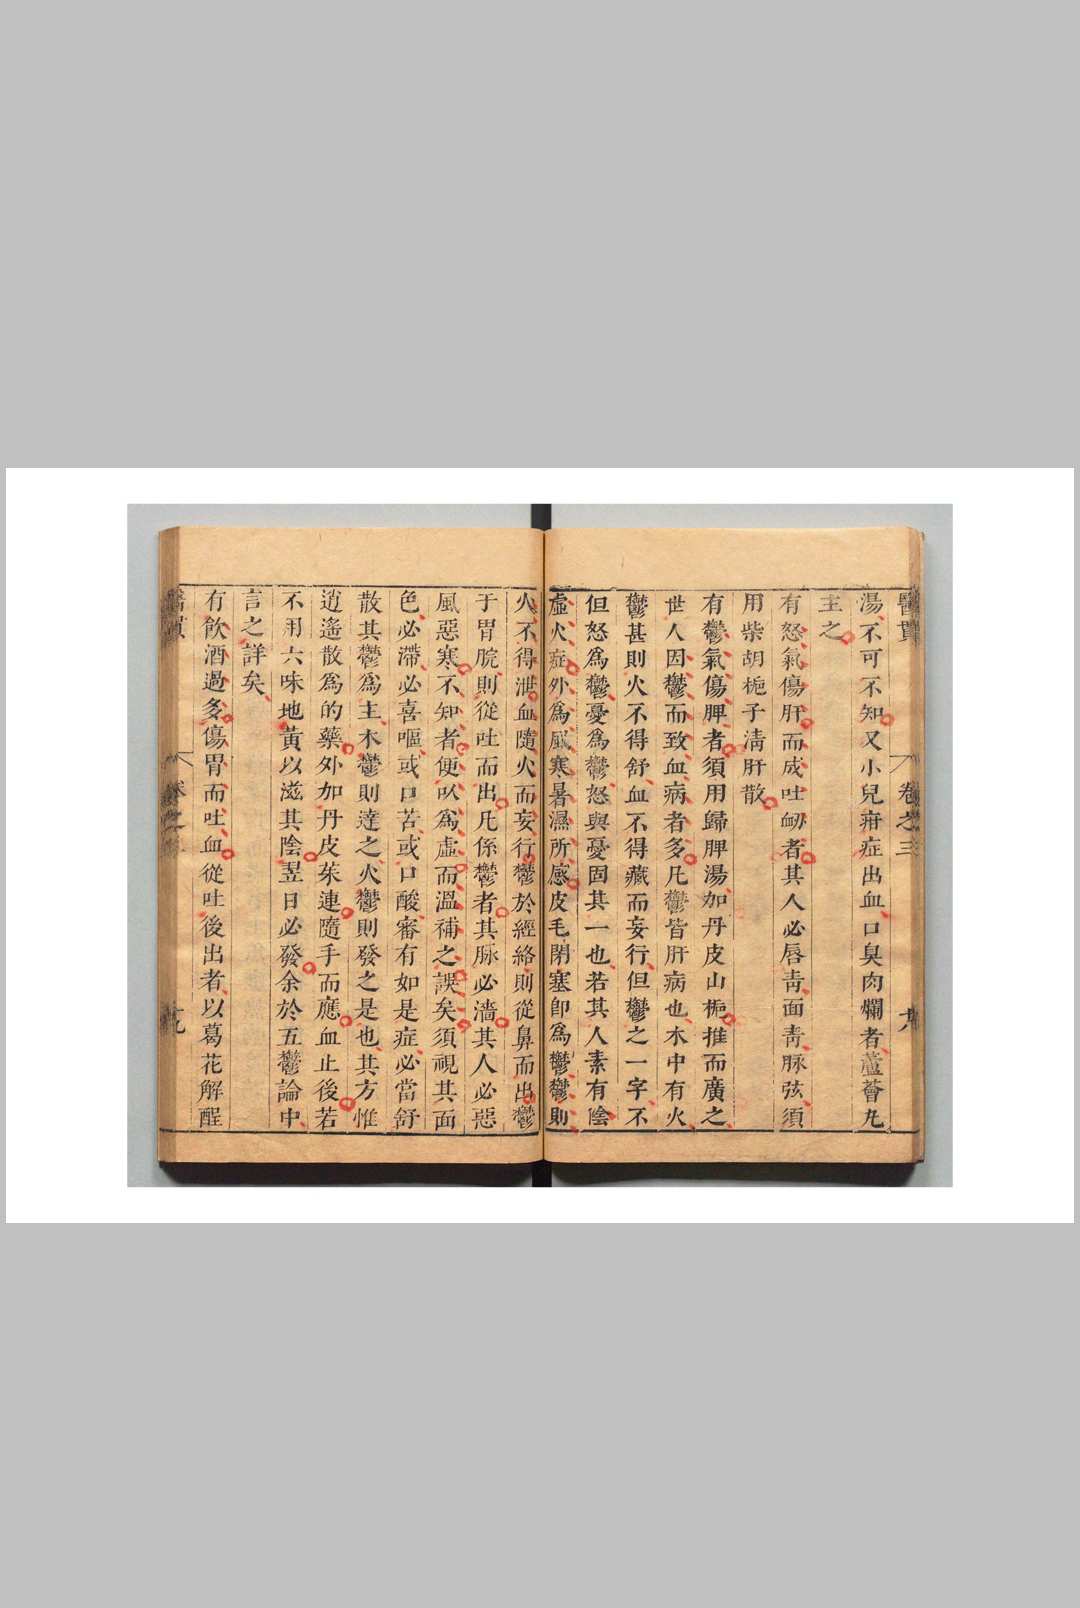 醫貫
卷之三
湯不可不知又小兒疳症出血口臭肉爛者蘆薈丸
主之
有怒氣傷肝而成吐衂者其人必唇靑面靑脉弦須
用柴胡梔子淸肝散
有鬱氣傷脾者須用歸脾湯加丹皮山梔推而廣之
世人因鬱而致血病者多凡鬱皆肝病也木中有火
鬱甚則火不得舒血不得藏而妄行但鬱之一字不
但怒爲鬱憂爲鬱怒與憂固其一也若其人素有陰
虛火症外爲風寒暑濕所感皮毛閉塞卽爲鬱鬱則
火不得泄血隨火而妄行鬱於經絡則從鼻而出鬱
于胃脘則從吐而出凡係鬱者其脉必濇其人必惡
風惡寒不知者便以爲虛而溫補之誤矣須視其面
色必滯必喜嘔或口苦或口酸審有如是症必當舒
散其鬱爲主木鬱則達之火鬱則發之是也其方惟
逍遙散爲的藥外加丹皮茱連隨手而應血止後若
不用六味地黃以滋其陰翌日必發余於五鬱論中
言之詳矣
有飮酒過多傷胃而吐血從吐後出者以葛花解酲
醫貫
卷之三
九